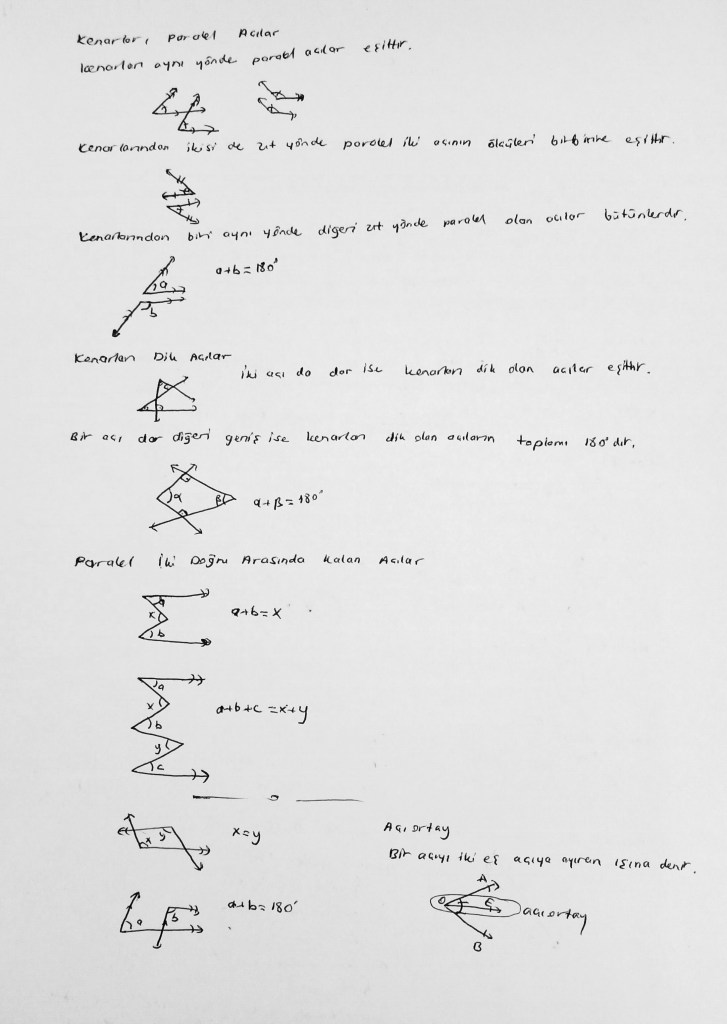 Kenarları Paralel Açılar
Kenarları aynı yönde paralel açılar eşittir.
Kenarlarından ikisi de zıt yönde paralel iki açının ölçüleri birbirine eşittir.
x
x
Kenarlarından biri aynı yönde diğeri zıt yönde paralel olan açılar bütünlerdir.
a
b
a+b=180°
Kenarları Dik Açılar
İki açı da dar ise kenarları dik olan açılar eşittir.
Bir açı dar diğeri geniş ise kenarları dik olan açıların toplamı 180°dir.
α
β
α+β=180°
Paralel İki Doğru Arasında Kalan Açılar
a
x
b
a+b=x
a
x
b
y
c
a+b+c=x+y
x
y
x=y
a
b
a+b=180°
Açıortay
Bir açıyı iki eş açıya ayıran ışına denir.
A
O
C
B
açıortay